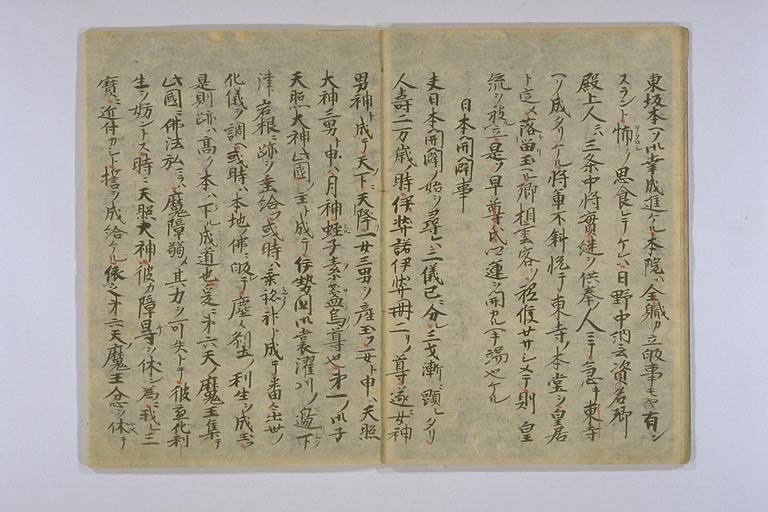 東坂本ヘソ御幸成進ケル本院ハ全職カ立皈事モヤ有ン
スラント怖ソ思食レテケレハ日野中納言資名卿
殿上人ニハ三条中将實継ソ供奉人ニテ急キ東寺
ヘソ成タリケル将軍不斜悦テ東寺ノ本堂ヲ皇居
ト定メ落留玉ル卿相雲客ヲ祗候セサシメテ則皇
流ヲ被立是ソ早尊氏ノ運ヲ開ヘキ端也ケル
日本開闢事
夫日本開闢ノ始ヲ尋レハ二儀已ニ分レ三才漸ニ顕レタリ
人壽二万歳時伊弉諾伊弉冊二リノ尊遂ニ女神
男神ト成テ天下ニ天降一女三男ヲ産玉フ一女ト申ハ天照
大神三男ト申ハ月神蛭子素盞烏尊也第一ノ御子
天照大神此國ノ主ト成テ伊勢國御裳濯川ノ邊下
津岩根ニ跡ヲ垂給フ或時ハ垂迹神ト成テ番々出世ノ
化儀ヲ調ヘ或時ハ本地ノ佛ニ皈テ塵々刹土ノ利生ヲ成玉フ
是則跡ハ高ノ本ハ下ル成道也是ニ第六天ノ魔王集テ
此國ニ佛法弘ラハ魔障弱メ其力ヲ可失トテ彼ノ應化利
生ヲ妨ントス時ニ天照大神彼カ障碍ヲ休ン為ニ我レ三
寳ニ近付カシト誓ヲ成給ケル依之第六天魔王忿ヲ休テ